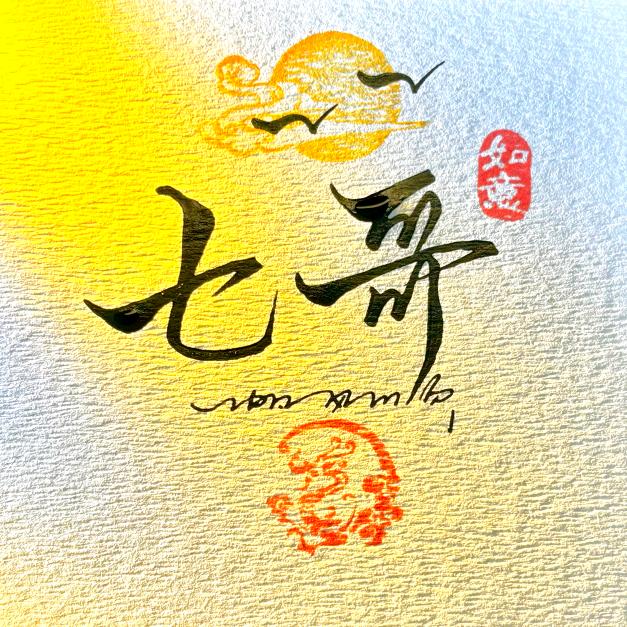 七哥
如意